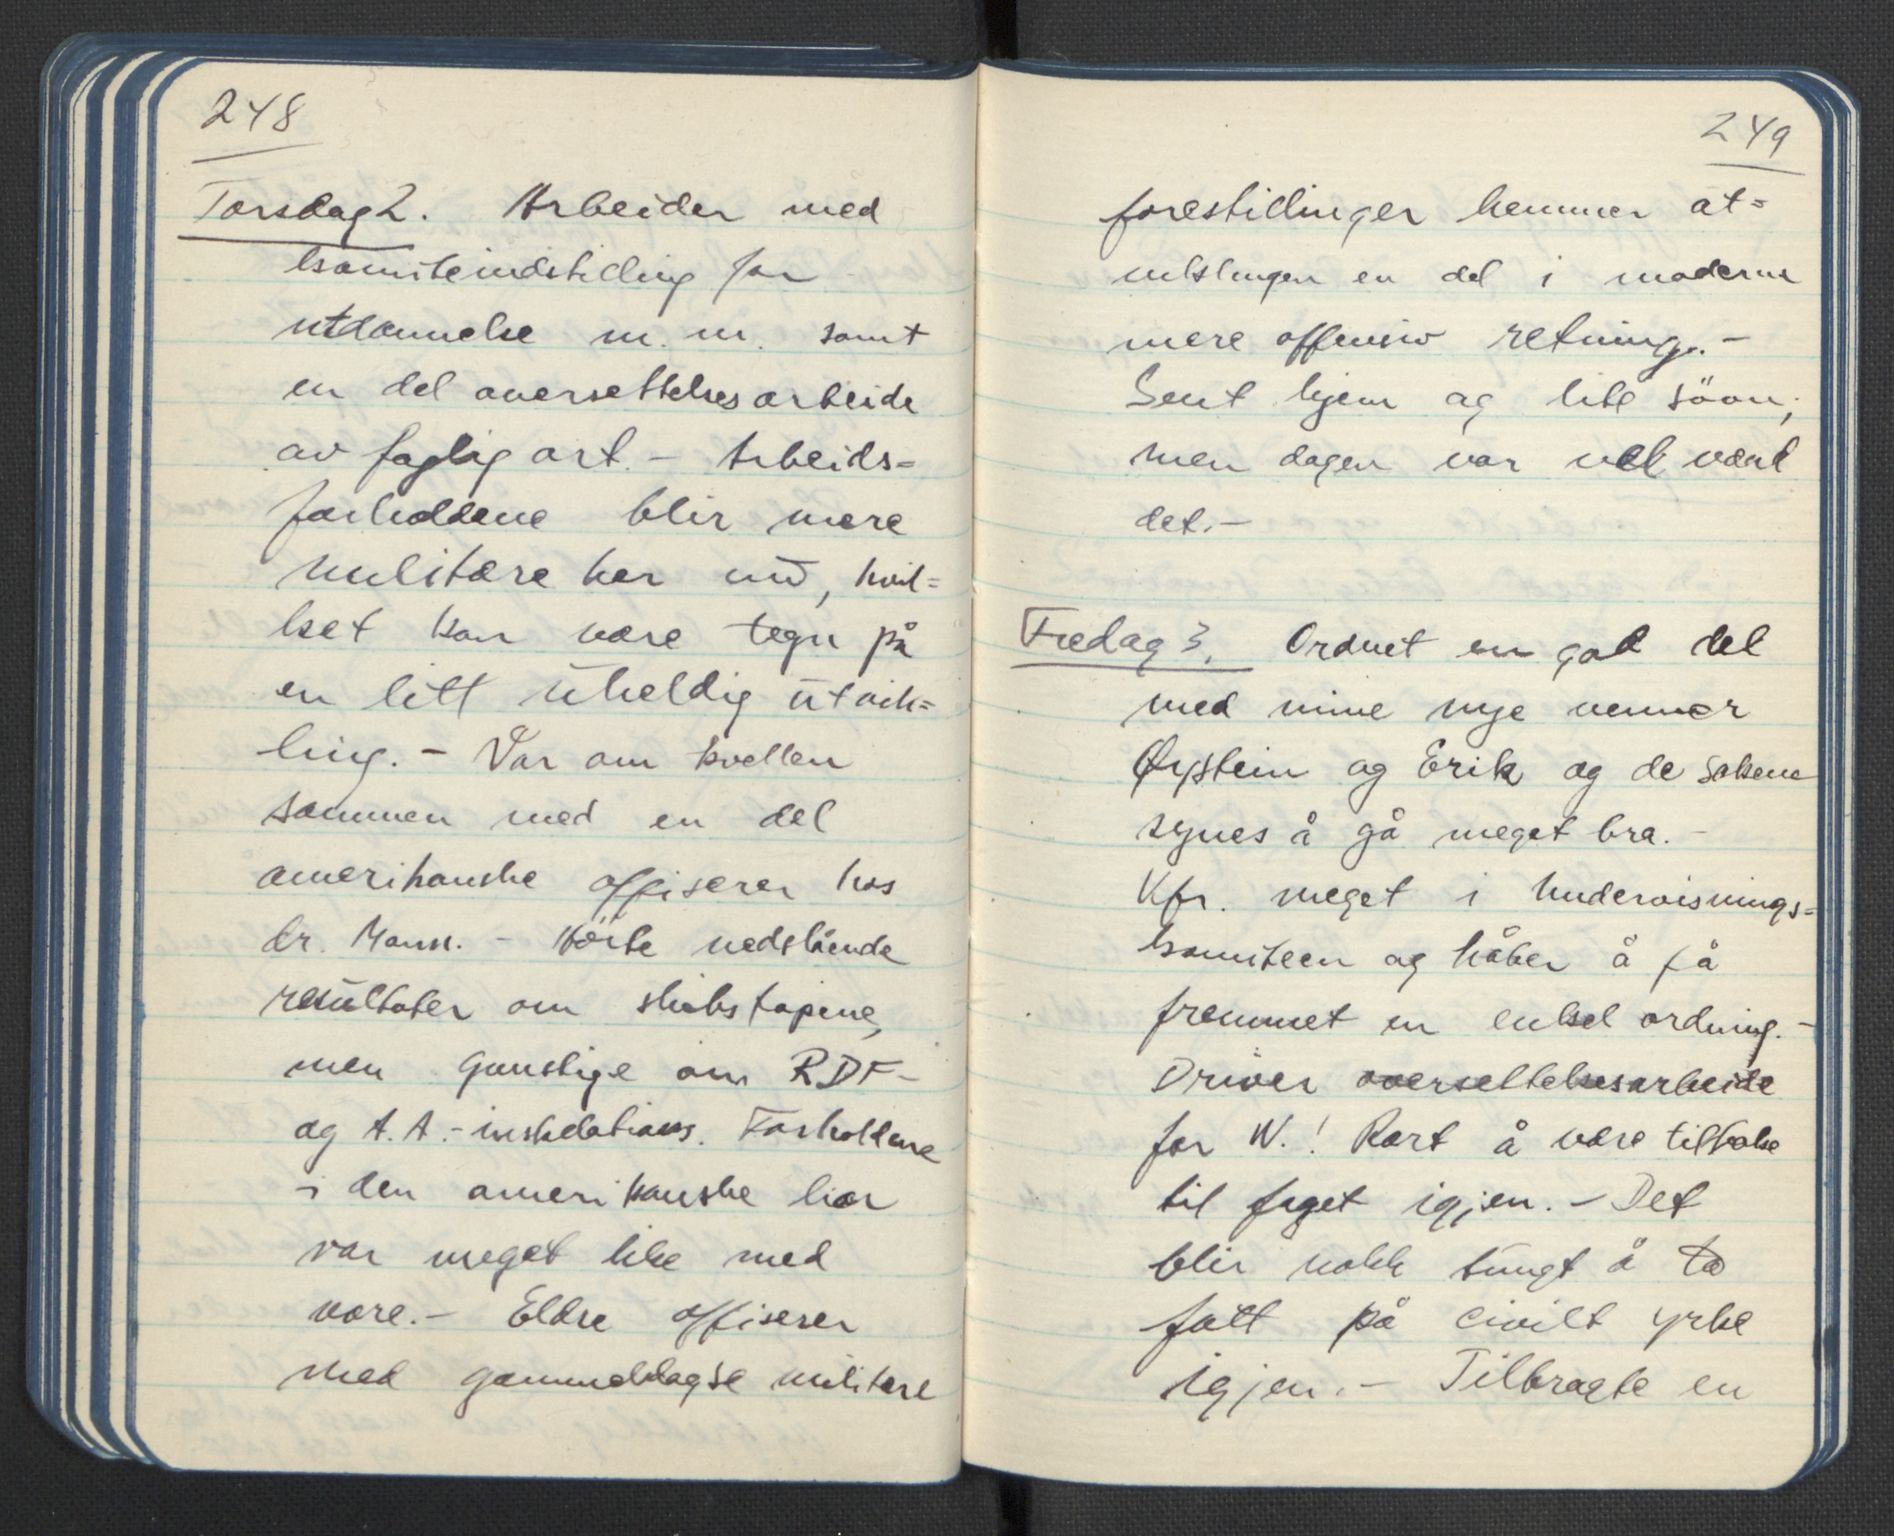 248
Torsdag 2. Arbeider med
komiteindstilling for
utdannelse m. m. samt
en del oversettelsesarbeide
av faglig art. - Arbeids=
forholdene blir mere
militære her nu, hvil=
ket kan være tegn på
en litt uheldig utvik=
ling. - Var om kvellen
sammen med en del
amerikanske offiserer hos
dr. Mann. - Hörte nedslående
resultater om skibstapene,
men gunstige om RDF-
og A.A.-inskelations. Forholdene
i den amerikanske hær
var meget like med
våre. - Eldre offiserer
med gammeldagse militære
249
forestillinger hemmer ut=
viklingen en del i moderne
mere offensiv retning. -
Sent hjem og lite sövn,
men dagen var vel værd
det. -
Fredag 3. Ordnet en god del
med mine nye venner
Øystein og Erik og de sakene
synes å gå meget bra. -
Kfr. meget i Undervisnings=
komiteen og håber å få
fremmet en enkel ordning. -
Driver oversettelsesarbeide
for W.! Rart å være tilbake
til faget igjen. - Det
blir nokk tungt å ta
fatt på civilt yrke
igjen. - Tilbragte en